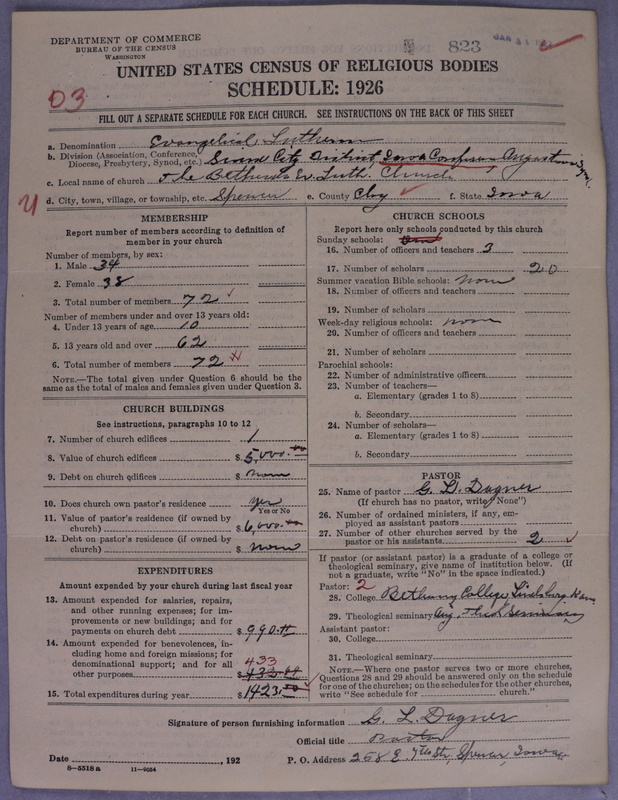 DEPARTMENT OF COMMERCE
BUREAU OF THE CENSUS
WASHINGTON
823
UNITED STATES CENSUS OF RELIGIOUS BODIES
SCHEDULE: 1926
D3
FILL OUT A SEPARATE SCHEDULE FOR EACH CHURCH. SEE INSTRUCTIONS ON THE BACK OF THIS SHEET
a. Denomination Evangelical Lutheran
b. Division (Association, Conference, Diocese, Presbytery, Synod, etc.) City District, Iowa Conference, Augustana Synod.
c. Local name of church The Bethany Ev. Luth. Church
d. City, town, village, or township, etc. Spencer e. County Clay f. State Iowa
MEMBERSHIP
Report number of members according to definition of
member in your church
Number of members, by sex:
1. Male 34
2. Female 38
3. Total number of members 72
Number of members under and over 13 years old:
4. Under 13 years of age 10
5. 13 years old and over 62
6. Total number of members 72
NOTE.—The total given under Question 6 should be the
same as the total of males and females given under Question 3.
CHURCH BUILDINGS
See instructions, paragraphs 10 to 12
7. Number of church edifices 1
8. Value of church edifices $ 5,000.00
9. Debt on church edifices $ none
10. Does church own pastor's residence yes
Yes or No
11. Value of pastor's residence (if owned by
church) $ 6,000.00
12. Debt on pastor's residence (if owned by
church) $ none
EXPENDITURES
Amount expended by your church during last fiscal year
13. Amount expended for salaries, repairs,
and other running expenses; for im-
provements or new buildings; and for
payments on church debt $ 990.
14. Amount expended for benevolences, in-
cluding home and foreign missions; for
denominational support; and for all
other purposes 433 $
15. Total expenditures during year $ 1423.
CHURCH SCHOOLS
Report here only schools conducted by this church
Sunday schools:
16. Number of officers and teachers 3
17. Number of scholars 20
Summer vacation Bible schools: none
18. Number of officers and teachers
19. Number of scholars
Week-day religious schools: none
20. Number of officers and teachers
21. Number of scholars
Parochial schools:
22. Number of administrative officers
23. Number of teachers—
a. Elementary (grades 1 to 8)
b. Secondary
24. Number of scholars—
a. Elementary (grades 1 to 8)
b. Secondary
PASTOR
25. Name of pastor G. L. Dagner
(If church has no pastor, write "None")
26. Number of ordained ministers, if any, em-
ployed as assistant pastors
27. Number of other churches served by the
pastor or his assistants 2
If pastor (or assistant pastor) is a graduate of a college or
theological seminary, give name of institution below. (If
not a graduate, write "No" in the space indicated.)
Pastor: 2
28. College Bethany College, Lindsborg, Kans
29. Theological seminary Aug. Theol. Seminary
Assistant pastor:
30. College
31. Theological seminary
NOTE.—Where one pastor serves two or more churches,
Questions 28 and 29 should be answered only on the schedule
for one of the churches; on the schedules for the other churches,
write "See schedule for church."
Signature of person furnishing information G. L. Dagner
Official title Pastor
Date , 192 P. O. Address 258 E. 7th St., Spencer, Iowa
8—5518 a 11—9054